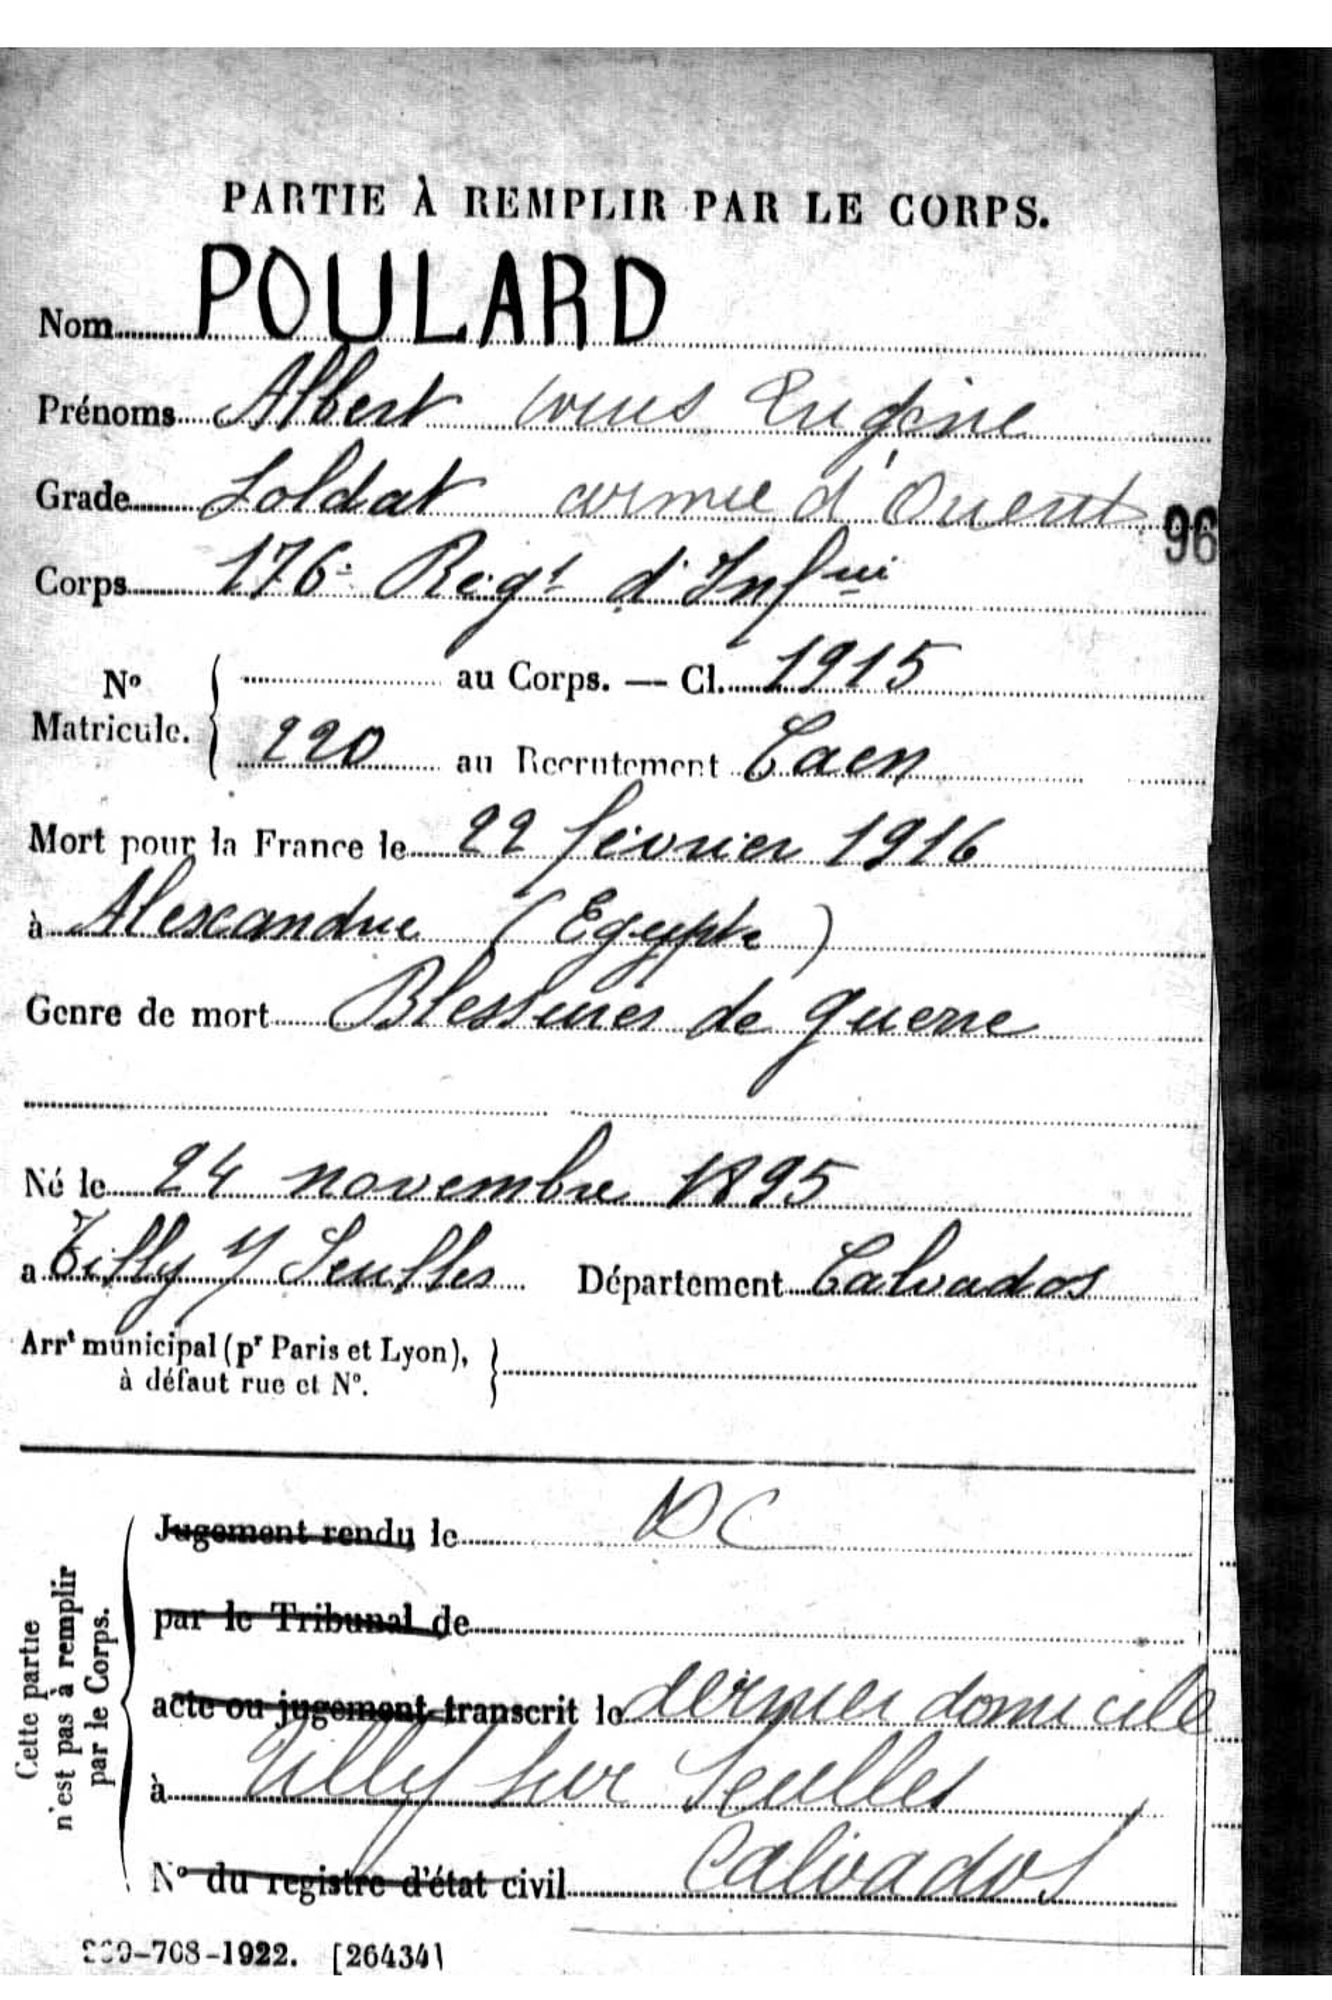 PARTIE À REMPLIR PAR LE CORPS.
Nom POULARD
Prénoms Albert Louis Eugène
Grade Soldat armée d'Orient
96
Corps 176e Regt d'Infie
No Matricule. { au Corps. — Cl. 1915
220 au Recrutement Caen
Mort pour la France le 22 février 1916
à Alexandrie (Egypte)
Genre de mort Blessures de guerre
Né le 24 novembre 1895
a Tilly s/ Seulles Département Calvados
Arrt municipal (pr Paris et Lyon),
à défaut rue et No.
Cette partie
n'est pas à remplir
par le Corps.
Jugement rendu le DC
par le Tribunal de
acte ou jugement transcrit le dernier domicile
à Tilly sur Seulles
No du registre d'état civil Calvados
-708-1922. [26434]